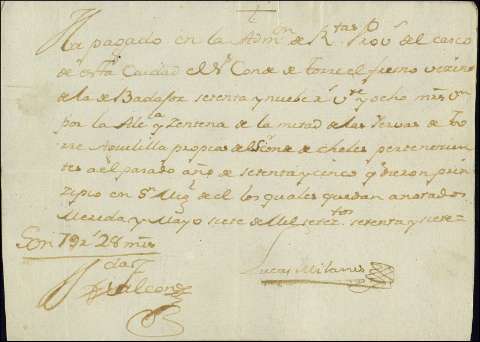 Ha pagado en la Admon de Rtas Prov.s del casco
de esta Ciudad el Sr Conde de torre el fresno vecino
de la de Badajoz setenta y nuebe rs. y ocho mrs. vn
por la Alca y Zentena de la mitad de las Yervas de to
rre Aguililla propias del Conde de cheles pertenecien
tes a el pasado año de setenta y cinco q dieron prin
zipio en Sn Migl de el los quales quedan anotados
Merida y Mayo siete de Mil setez.tos setenta y siete=
Son 79 rs 28 mrs
Falcon
Lucas Milanes